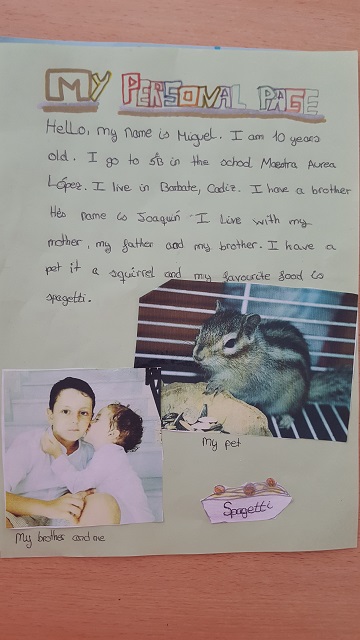 MY PERSONAL PAGE
Hello, my name is Miguel. I am 10 years
old. I go to 5ºB in the school Maestra Aurea
López. I live in Barbate, Cadiz. I have a brother
His name is Joaquín. I live with my
mother, my father and my brother. I have a
pet it a squirrel and my favourite food is
spagetti.
My pet
Spagetti
My brother and me